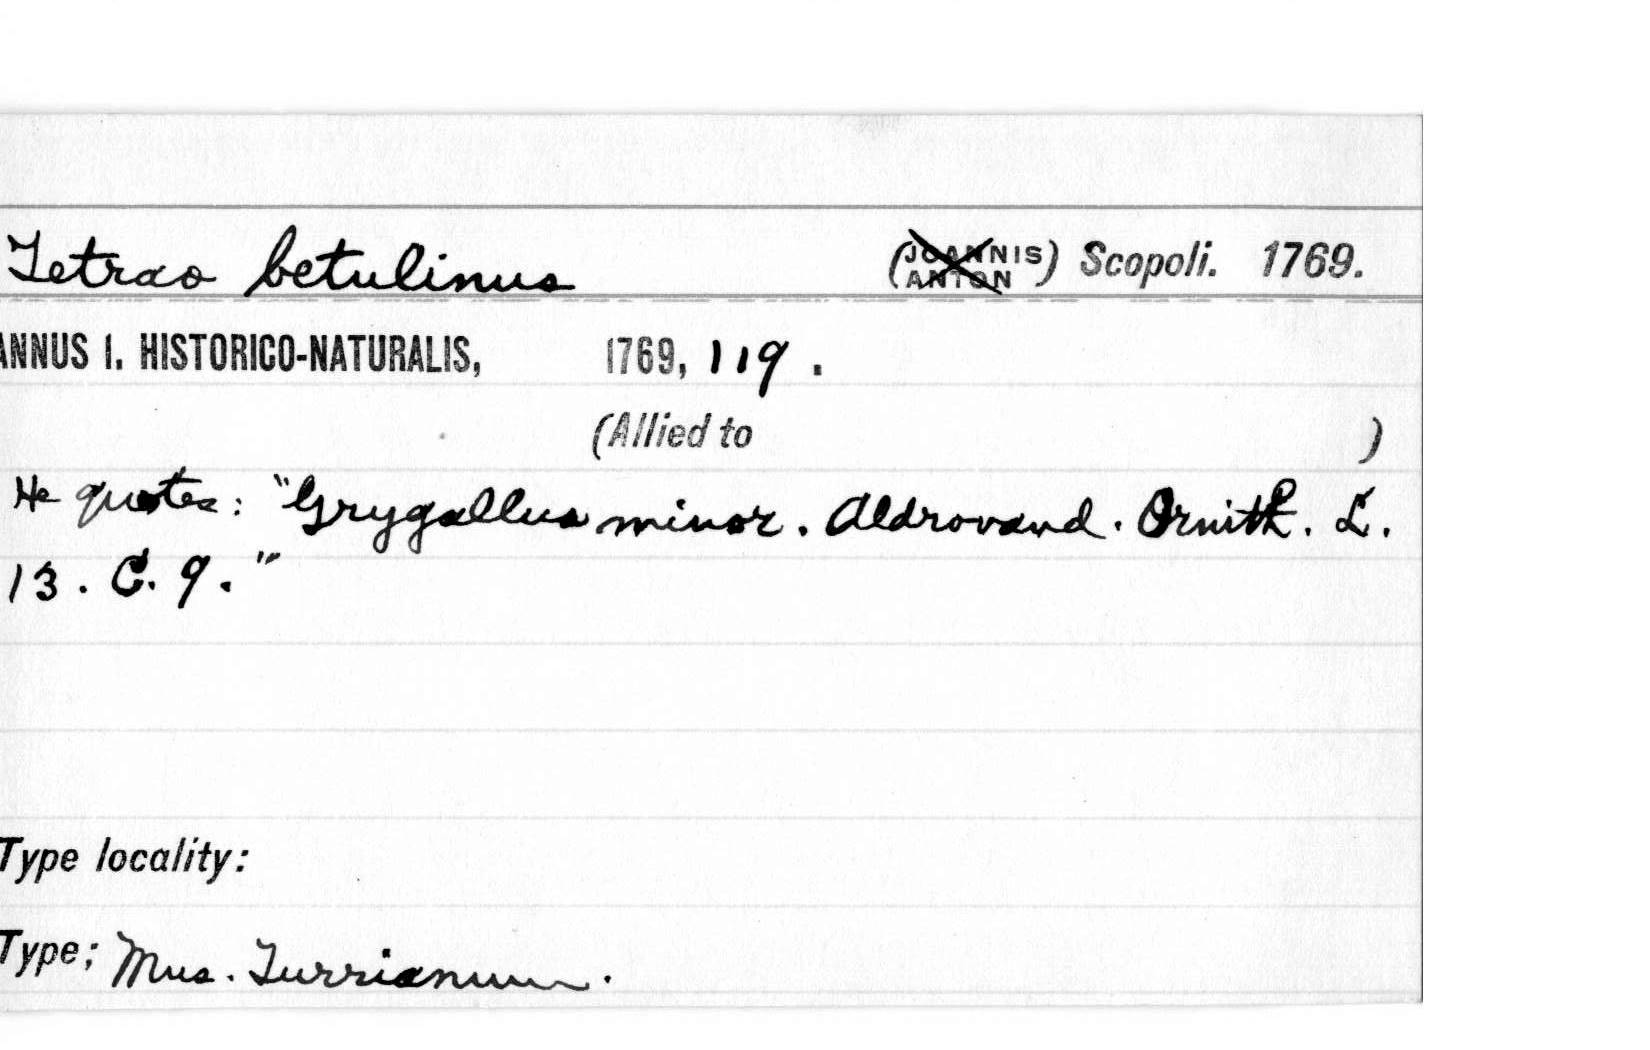 Tetrao betulinus (JOANNIS ANTON) Scopoli. 1769.
ANNUS I. HISTORICO-NATURALIS, 1769, 119.
(Allied to )
He quotes: "Grygallus minor. Aldrovand. Ornith. L.
13. C. 9."
Type locality:
Type; Mus. Turrianum.